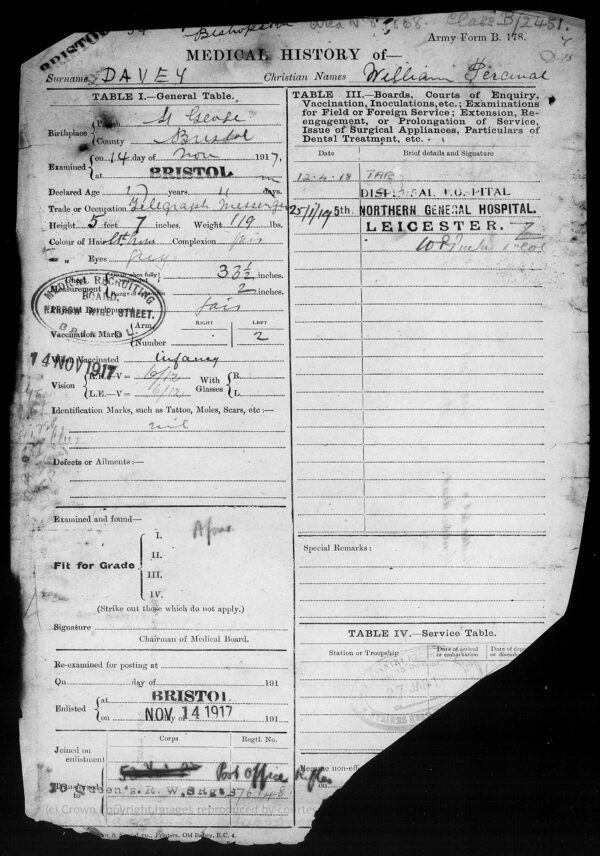 Bishopston Area No 8/868. Class B/2451.
BRISTOL
Army Form B. 178.
MEDICAL HISTORY of—
Surname DAVEY Christian Names William Percival
TABLE I.—General Table.
Birthplace Parish St George
County Bristol
Examined on 14 day of Nov 1917,
at BRISTOL
Declared Age 17 years 11 days.
Trade or Occupation Telegraph Messenger
Height 5 feet 7 inches. Weight 119 lbs.
Colour of Hair Complexion fair
" " Eyes grey
Measurement 33½ inches.
2 inches.
fair
MEDICAL RECRUITING
BOARD,
NARROW WINE STREET,
BRISTOL
Vaccination Marks Arm RIGHT LEFT
Number 2
14 NOV 1917
Vaccinated infancy
Vision R.E.—V = 6/12 With Glasses R.
L.E.—V = 6/12 L.
Identification Marks, such as Tattoo, Moles, Scars, etc :—
nil
Defects or Ailments :—
Examined and found—
Fit for Grade
I.
II.
III.
IV.
(Strike out those which do not apply.)
Signature
Chairman of Medical Board.
Re-examined for posting at
On day of 191
Enlisted at BRISTOL
on NOV 14 1917 191
Corps. Regtl. No.
Joined on enlistment Post Office Rifles
to Queen's. R. W.
(c) Crown Copyright Images reproduced by courtesy
Printers, Old Bailey, E.C. 4.
TABLE III.—Boards, Courts of Enquiry,
Vaccination, Inoculations, etc.; Examinations
for Field or Foreign Service; Extension, Re-
engagement, or Prolongation of Service,
Issue of Surgical Appliances, Particulars of
Dental Treatment, etc.
Date Brief details and Signature
12-4-18 TAB
HOSPITAL
25/1/19 5th. NORTHERN GENERAL HOSPITAL.
LEICESTER.
Special Remarks :
TABLE IV.—Service Table.
Station or Troopship Date of arrival or embarkation
27 JAN